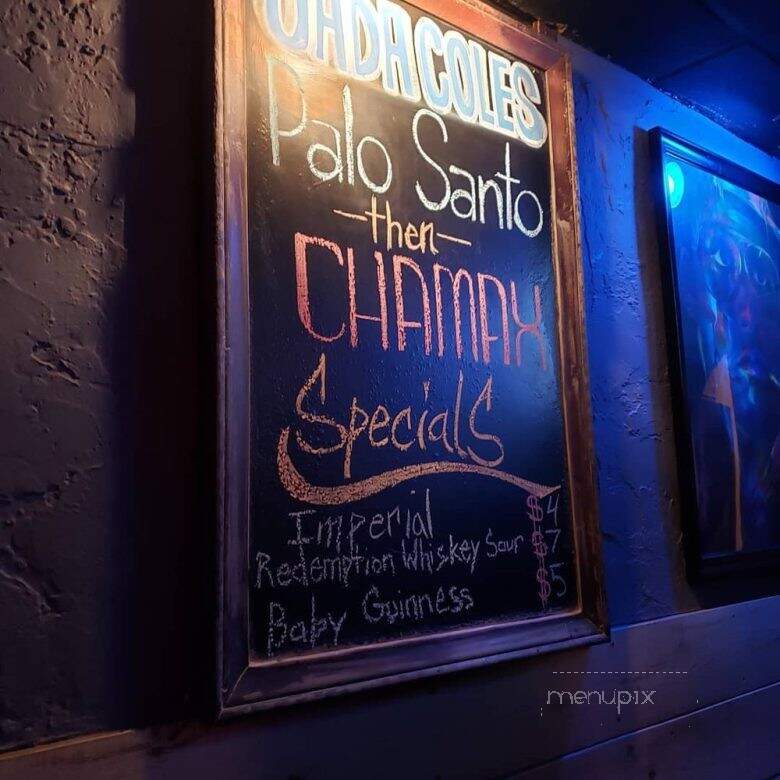 JADA COLES
Palo Santo
-then-
CHAMAX
Specials
Imperial $4
Redemption Whiskey Sour $7
Baby Guinness $5
menupix